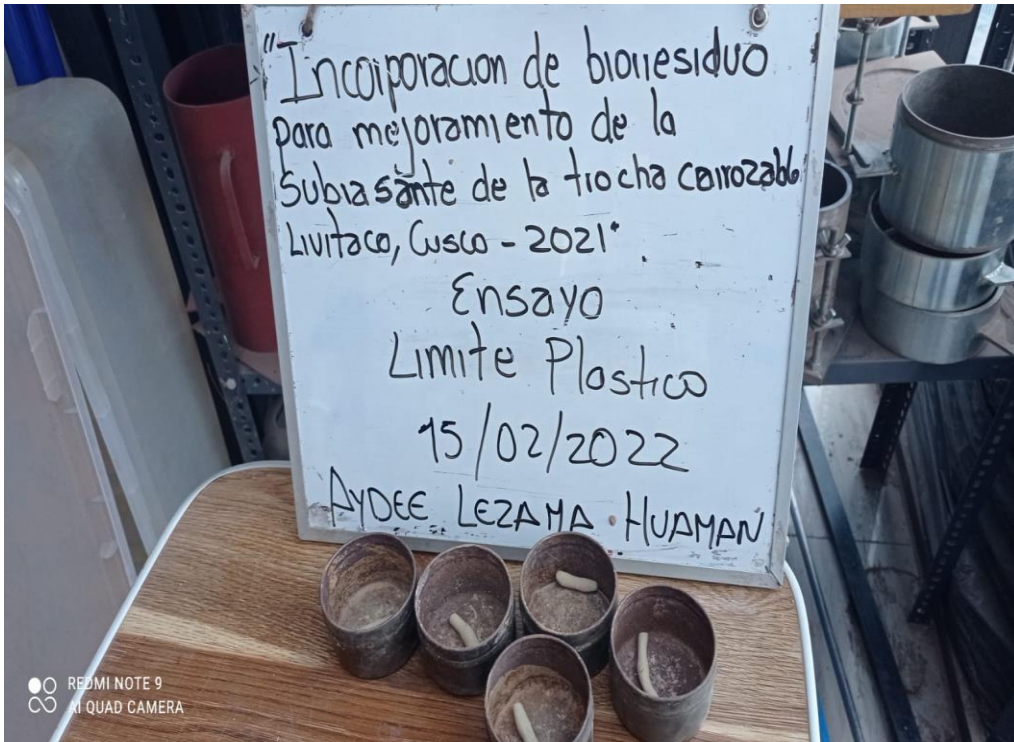 "Incorporacion de biorresiduo
para mejoramiento de la
Subrasante de la trocha carrozable
Livitaco, Cusco - 2021"
Ensayo
Limite Plastico
15/02/2022
AYDEE LEZAMA HUAMAN
REDMI NOTE 9
AI QUAD CAMERA